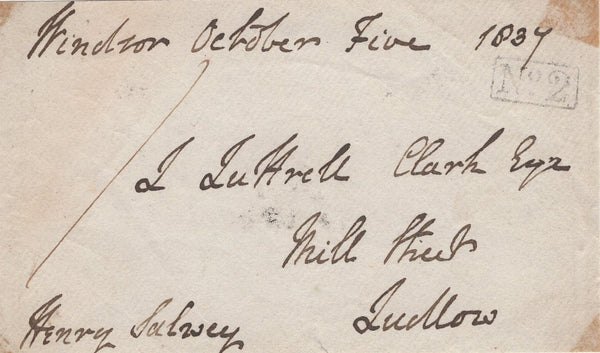 Windsor October Five 1837
No 2
J Luttrell Clark Esqr
Mill Street
Ludlow
Henry Salwey